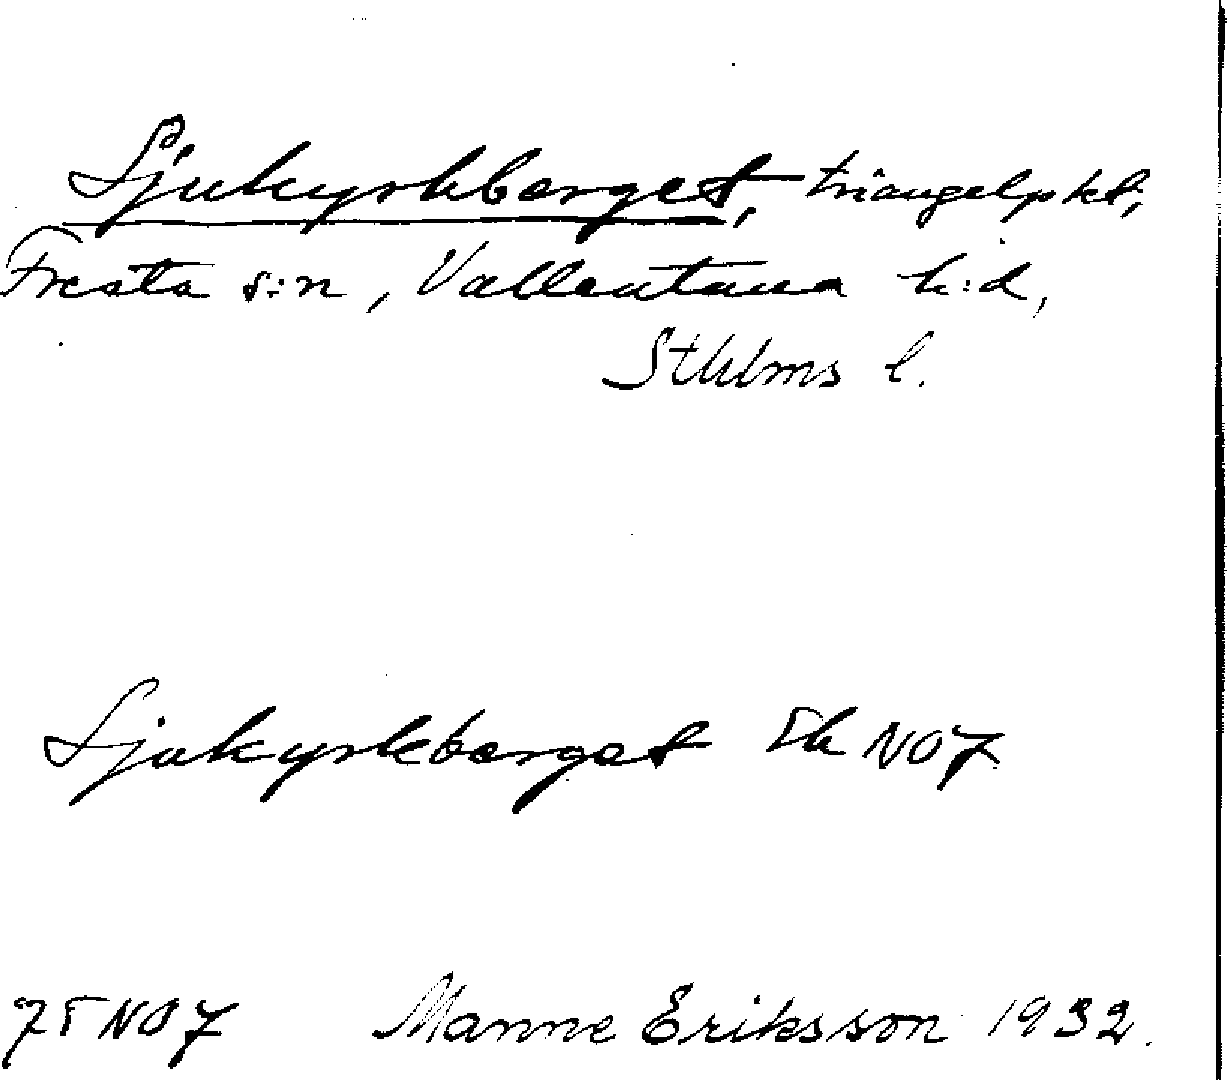 Sjukyrkberget, triangelpkt,
Fresta s:n, Vallentuna h:d,
Sthlms l.
Sjukyrkberget Ek NO7
75NO7 Manne Eriksson 1932.